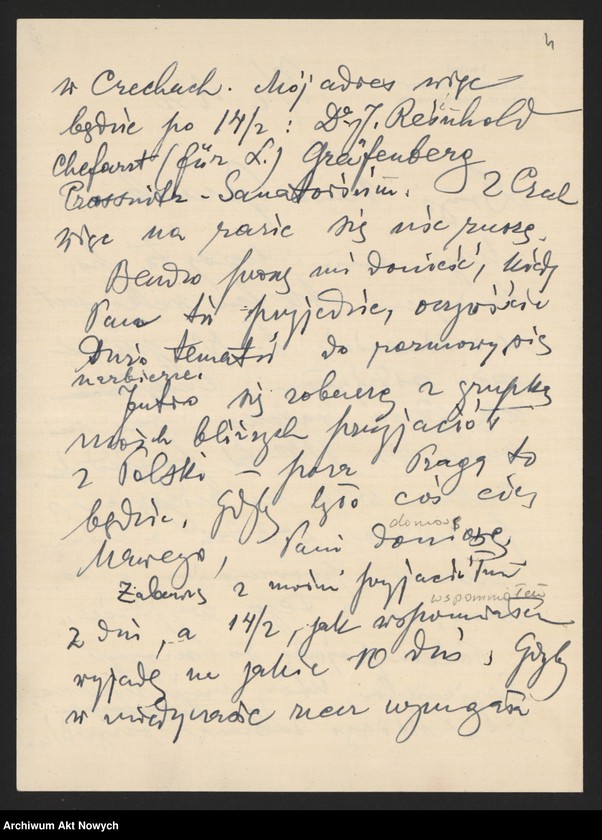 4
w Czechach. Mój adres więc
będzie po 14/2: Dr. J. Reinhold
Chefarzt (für L.) Gräfenberg
Prossnitz - Sanatorium. Z Czech
więc na razie się nie ruszę.
Bardzo proszę mi donieść, kiedy
Pan tu przyjedzie, oczywiście
Dużo tematów do rozmowy się
nazbierze.
Jutro się zobaczę z grupką
moich bliższych przyjaciół
z Polski – poza Pragą to
będzie. Gdyby było coś
nowego, Panu doniosę
doniosę
Zabawię z moimi przyjaciółmi
wspomniałem
2 dni, a 14/2, jak wspomniałem
wyjadę na jakie 10 dni. Gdyby
w międzyczasie rzecz wymagała
Archiwum Akt Nowych